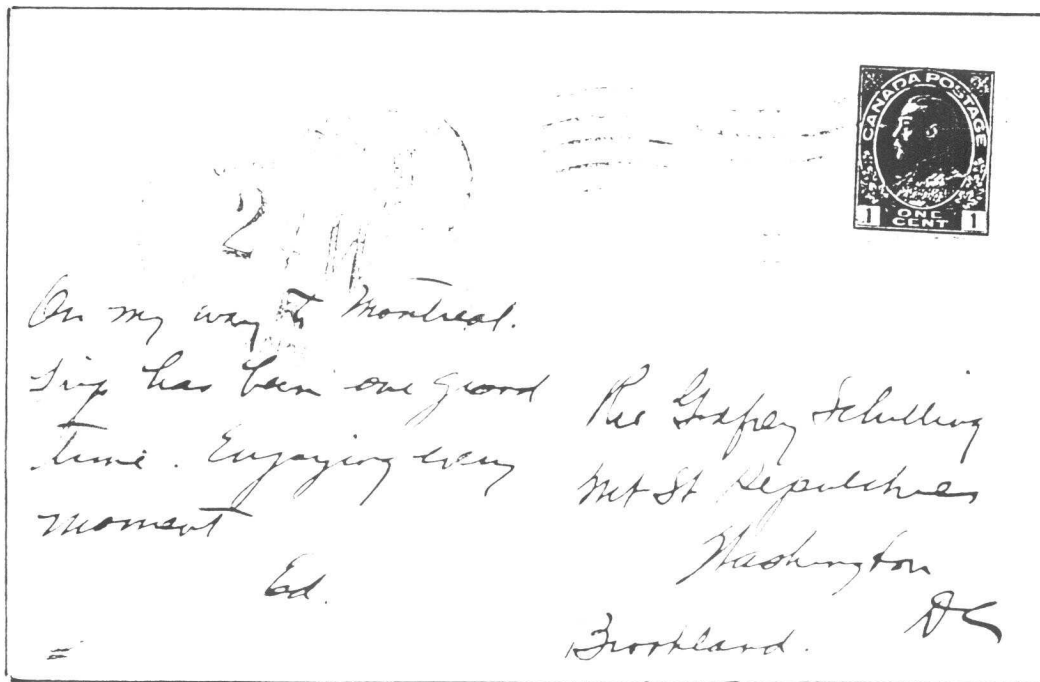 CANADA POSTAGE
1 ONE CENT 1
2
On my way to Montreal.
Trip has been one grand
time. Enjoying every
moment
Ed.
Rev Godfrey Schilling
Mt St Sepulchre
Washington
DC
Brookland.